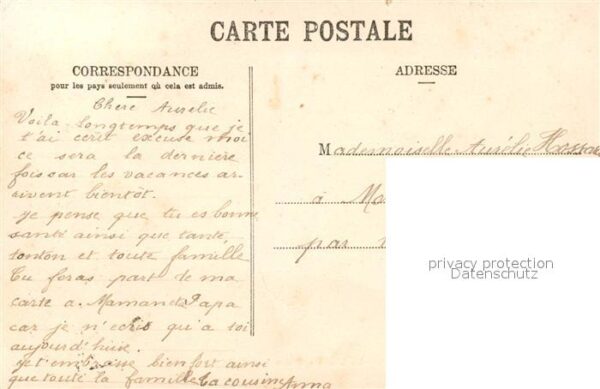 CARTE POSTALE
CORRESPONDANCE
pour les pays seulement où cela est admis.
ADRESSE
Chere Aurelie
Voila longtemps que je
t'ai ecrit excuse moi
ce sera la derniere
fois car les vacances ar-
rivent bientôt.
je pense que tu es bonne
santé ainsi que tante
tonton et toute famille
Tu feras part de ma
carte a Maman et Papa
car je n'ecris qu'a toi
aujourd'huie.
je t'embrasse bien fort ainsi
que toute la famille ta cousine Anna
Mademoiselle Aurélie
à
par
privacy protection
Datenschutz